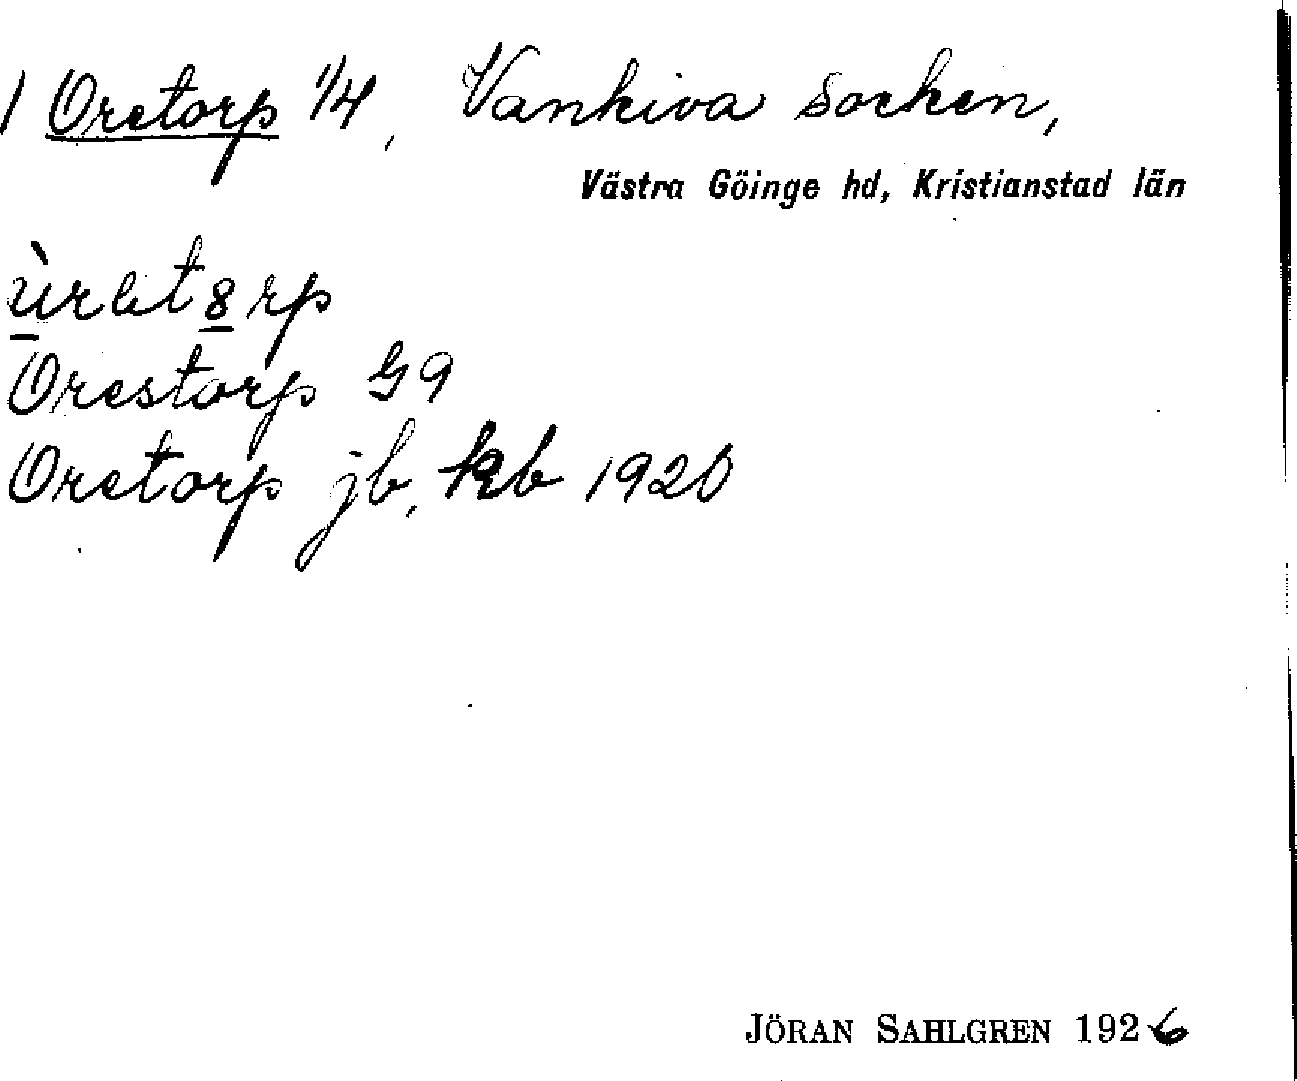 1 Oretorp 1/4, Vankiva socken,
Västra Göinge hd, Kristianstad län
Orestorp G9
Oretorp jb, kb 1920
JÖRAN SAHLGREN 1926